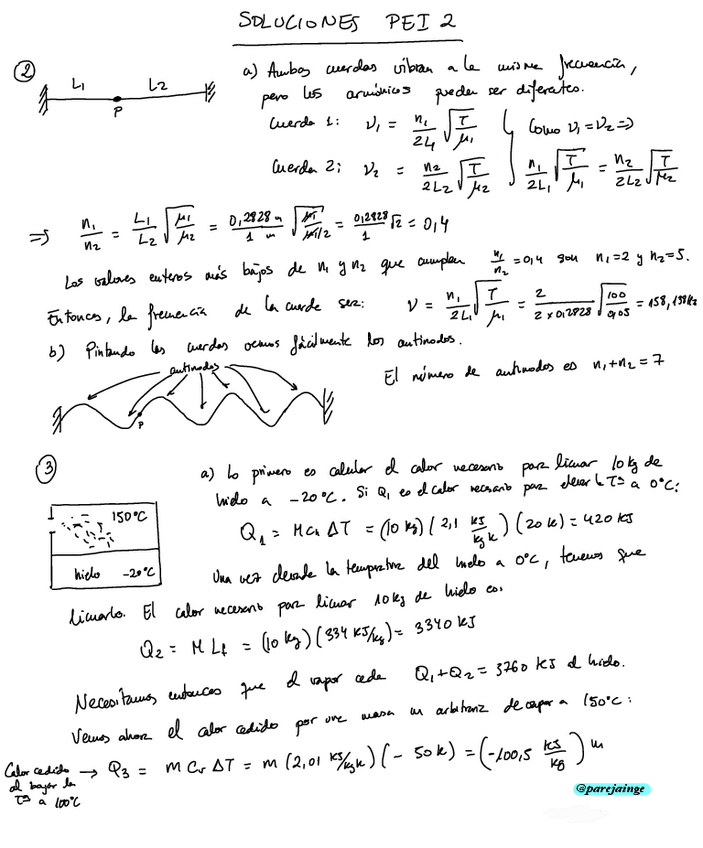 SOLUCIONES PEI 2
② L1 L2 P
a) Ambas cuerdas vibran a la misma frecuencia,
pero los armónicos pueden ser diferentes.
Cuerda 1: ν1 = n1/2L1 √(T/μ1)
Cuerda 2: ν2 = n2/2L2 √(T/μ2)
Como ν1 = ν2 =>
n1/2L1 √(T/μ1) = n2/2L2 √(T/μ2)
=> n1/n2 = L1/L2 √(μ1/μ2) = 0,2828 m/1 m √(μ1/(μ1/2)) = 0,2828/1 √2 = 0,4
Los valores enteros más bajos de n1 y n2 que cumplen n1/n2 = 0,4 son n1=2 y n2=5.
Entonces, la frecuencia de la cuerda será: ν = n1/2L1 √(T/μ1) = 2/(2 x 0,2828) √(100/0,05) = 158,13 Hz
b) Pintando las cuerdas vemos fácilmente los antinodos.
antinodos
P
El número de antinodos es n1+n2 = 7
③
150°C
hielo -20°C
a) Lo primero es calcular el calor necesario para licuar 10 kg de
hielo a -20°C. Si Q1 es el calor necesario para elevar la Tª a 0°C:
Q1 = M Ch ΔT = (10 kg) (2,1 kJ/kg K) (20 K) = 420 kJ
Una vez elevada la temperatura del hielo a 0°C, tenemos que
licuarlo. El calor necesario para licuar 10 kg de hielo es:
Q2 = M Lf = (10 kg) (334 kJ/kg) = 3340 kJ
Necesitamos entonces que el vapor ceda Q1+Q2 = 3760 kJ al hielo.
Vemos ahora el calor cedido por una masa m arbitraria de vapor a 150°C:
Calor cedido
al bajar la
Tª a 100°C
→ Q3 = m Cv ΔT = m (2,01 kJ/kg K) (- 50 K) = (-100,5 kJ/kg) m
@parejainge